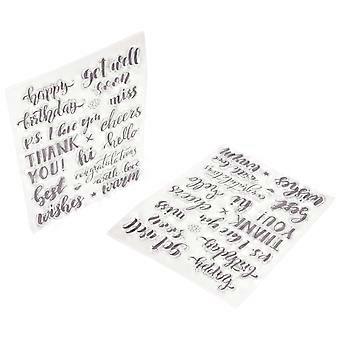 happy
birthday
get well
soon
miss
p.s. I love you
cheers
THANK
YOU!
hi
hello
congratulations
with love
best
wishes
warm
wishes
warm
best
congratulations
with love
hi
hello
YOU!
THANK
cheers
p.s. I love you
miss
soon
get well
birthday
happy